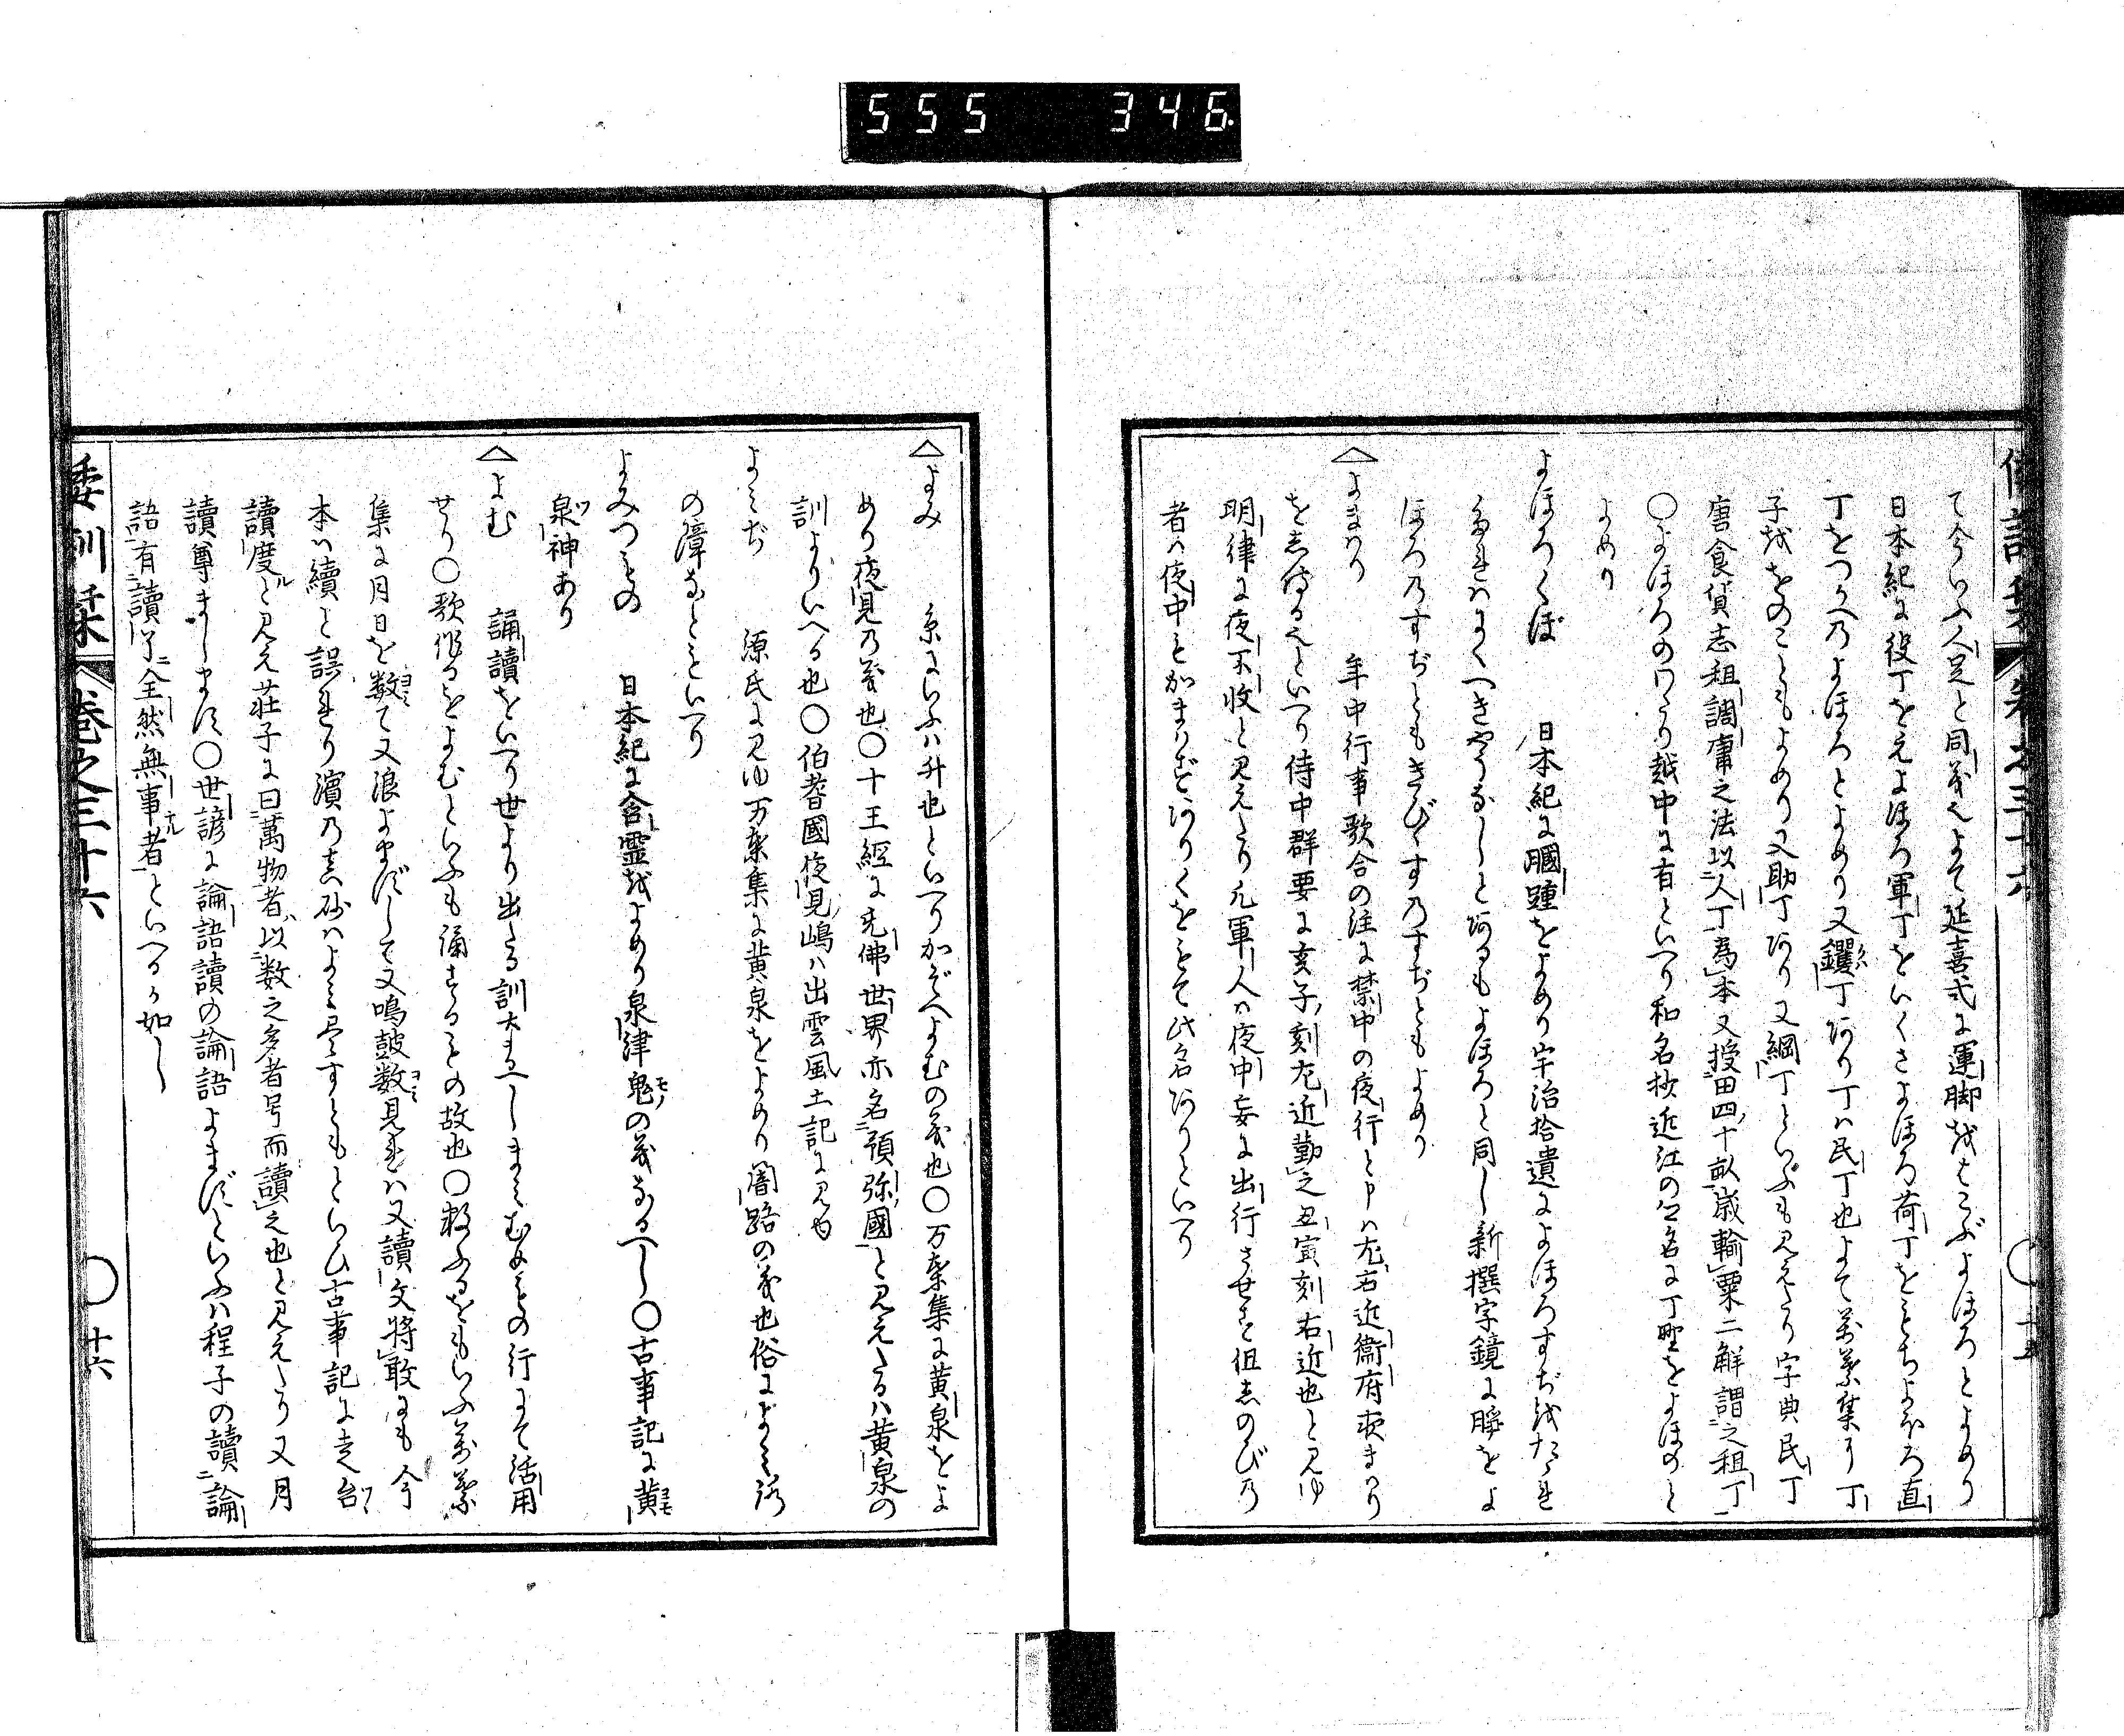 555 346
て今いふ人足と同義也よて延喜式に運脚をはこぶよほろとよめり
日本紀に役丁をえよほろ軍丁をいくさよほろ荷丁をもちよほろ直
丁をつかへのよほろとよめり又鑺丁あり丁ハ民丁也よて萬葉集に丁
子をよのこともよめり又助丁あり又綱丁といふも見えたり字典民丁
唐食貨志租調庸之法以人丁為本又授田四十畝歳輸粟二斛謂之租丁
○よほろのわたり越中に有といへり和名抄近江の郷名に丁野をよほのと
よめり
よほろくぼ 日本紀に膕踵をよめり宇治拾遺によほろすぢをたゝれ
たれハにくべきやうなしとあるもよほろと同し新撰字鏡に䠊をよ
ほろのすぢともきびすのすぢともよめり
よまハり 年中行事歌合の注に禁中の夜行と申ハ左右近衞府夜まハり
をしはる也といへり侍中群要に亥子刻左近勤之丑寅刻右近也と見ゆ
明律に夜不收と見えたり凡軍人ハ夜中妄に出行させず但しのびの
者ハ夜中もかまハずありくをもて此名ありといへり
よみ 糸にいふハ升也といへりかぞへよむの義也○万葉集に黄泉をよ
めり夜見の義也○十王經に先佛世界亦名預弥國と見えたるハ黄泉の
訓よりいへる也○伯耆國夜見嶋ハ出雲風土記に見ゆ
よみぢ 源氏に見ゆ万葉集に黄泉をよめり闇路の義也俗によみぢ
の障なともいへり
よみつもの 日本紀に含霊をよめり泉津鬼の義なるべし○古事記に黄
泉神あり
よむ 誦讀をいへり世より出たる訓なるべしまみむめもの行にて活用
せり○歌作るをよむといふも誦することの故也○数ふるをもいふ萬葉
集に月日を数て又浪よまずして又鳴鼓数見れハ又讀文将敢にも今
本ハ續と誤れり濱の真砂ハよみ尽すともといひ古事記に走台
讀度と見え荘子に曰萬物者以数之多者号而讀之也と見えたり又月
讀尊まします○世諺に論語讀の論語よまずといふハ程子の讀論
語有讀了全然無事者といへるか如し
倭訓栞 巻之三十六 ○ 十六